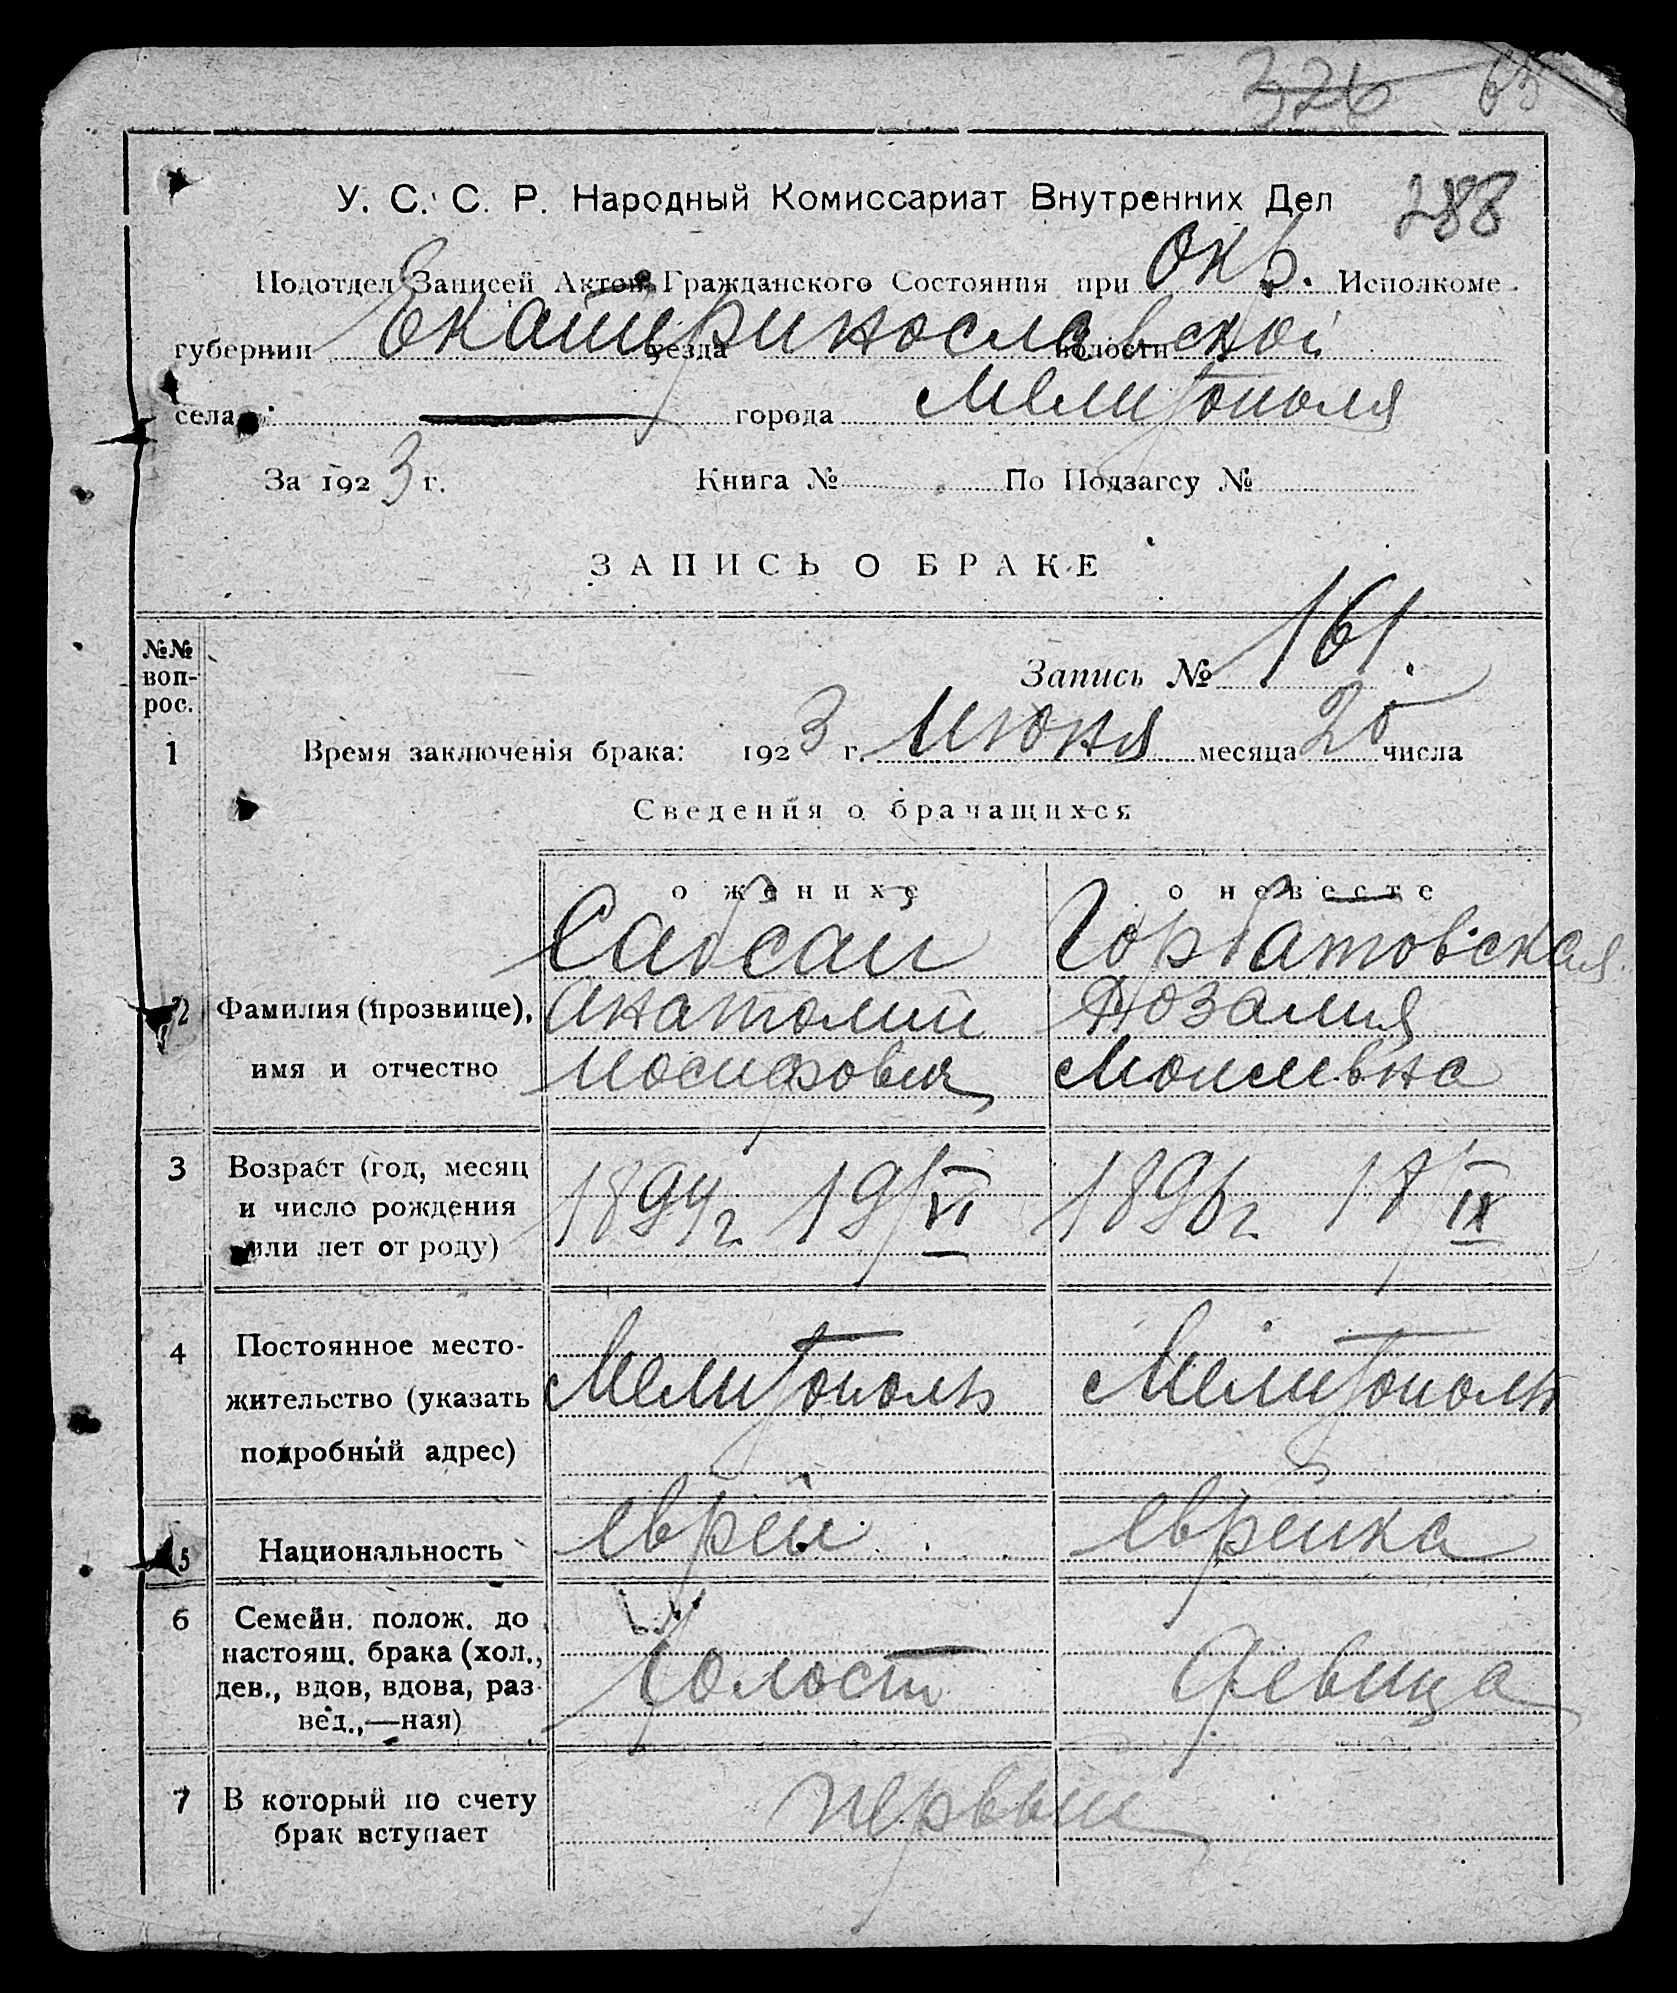 326 63
288
У. С. С. Р. Народный Комиссариат Внутренних Дел
Подотдел Записей Актов Гражданского Состояния при Окр. Исполкоме
губернии Екатеринославской уезда волости
села — города Мелитополя
За 1923 г. Книга № По Подзагсу №
ЗАПИСЬ О БРАКЕ
№№ воп-
рос.
Запись № 161.
1 Время заключенія брака: 1923 г. Июня месяца 25 числа
Сведения о брачащихся
о женихе о невесте
Сабсай Горбатовская
2 Фамилия (прозвище), Анатолий Розалия
имя и отчество Иосифович Моисеевна
3 Возраст (год, месяц
и число рождения 1894 г. 19/VI 1896 г. 17/IX
или лет от роду)
4 Постоянное место-
жительство (указать Мелитополь Мелитополь
подробный адрес)
5 Национальность еврей еврейка
6 Семейн. полож. до
настоящ. брака (хол.,
дев., вдов, вдова, раз- Холост девица
вед.,—ная)
7 В который по счету первый
брак вступает